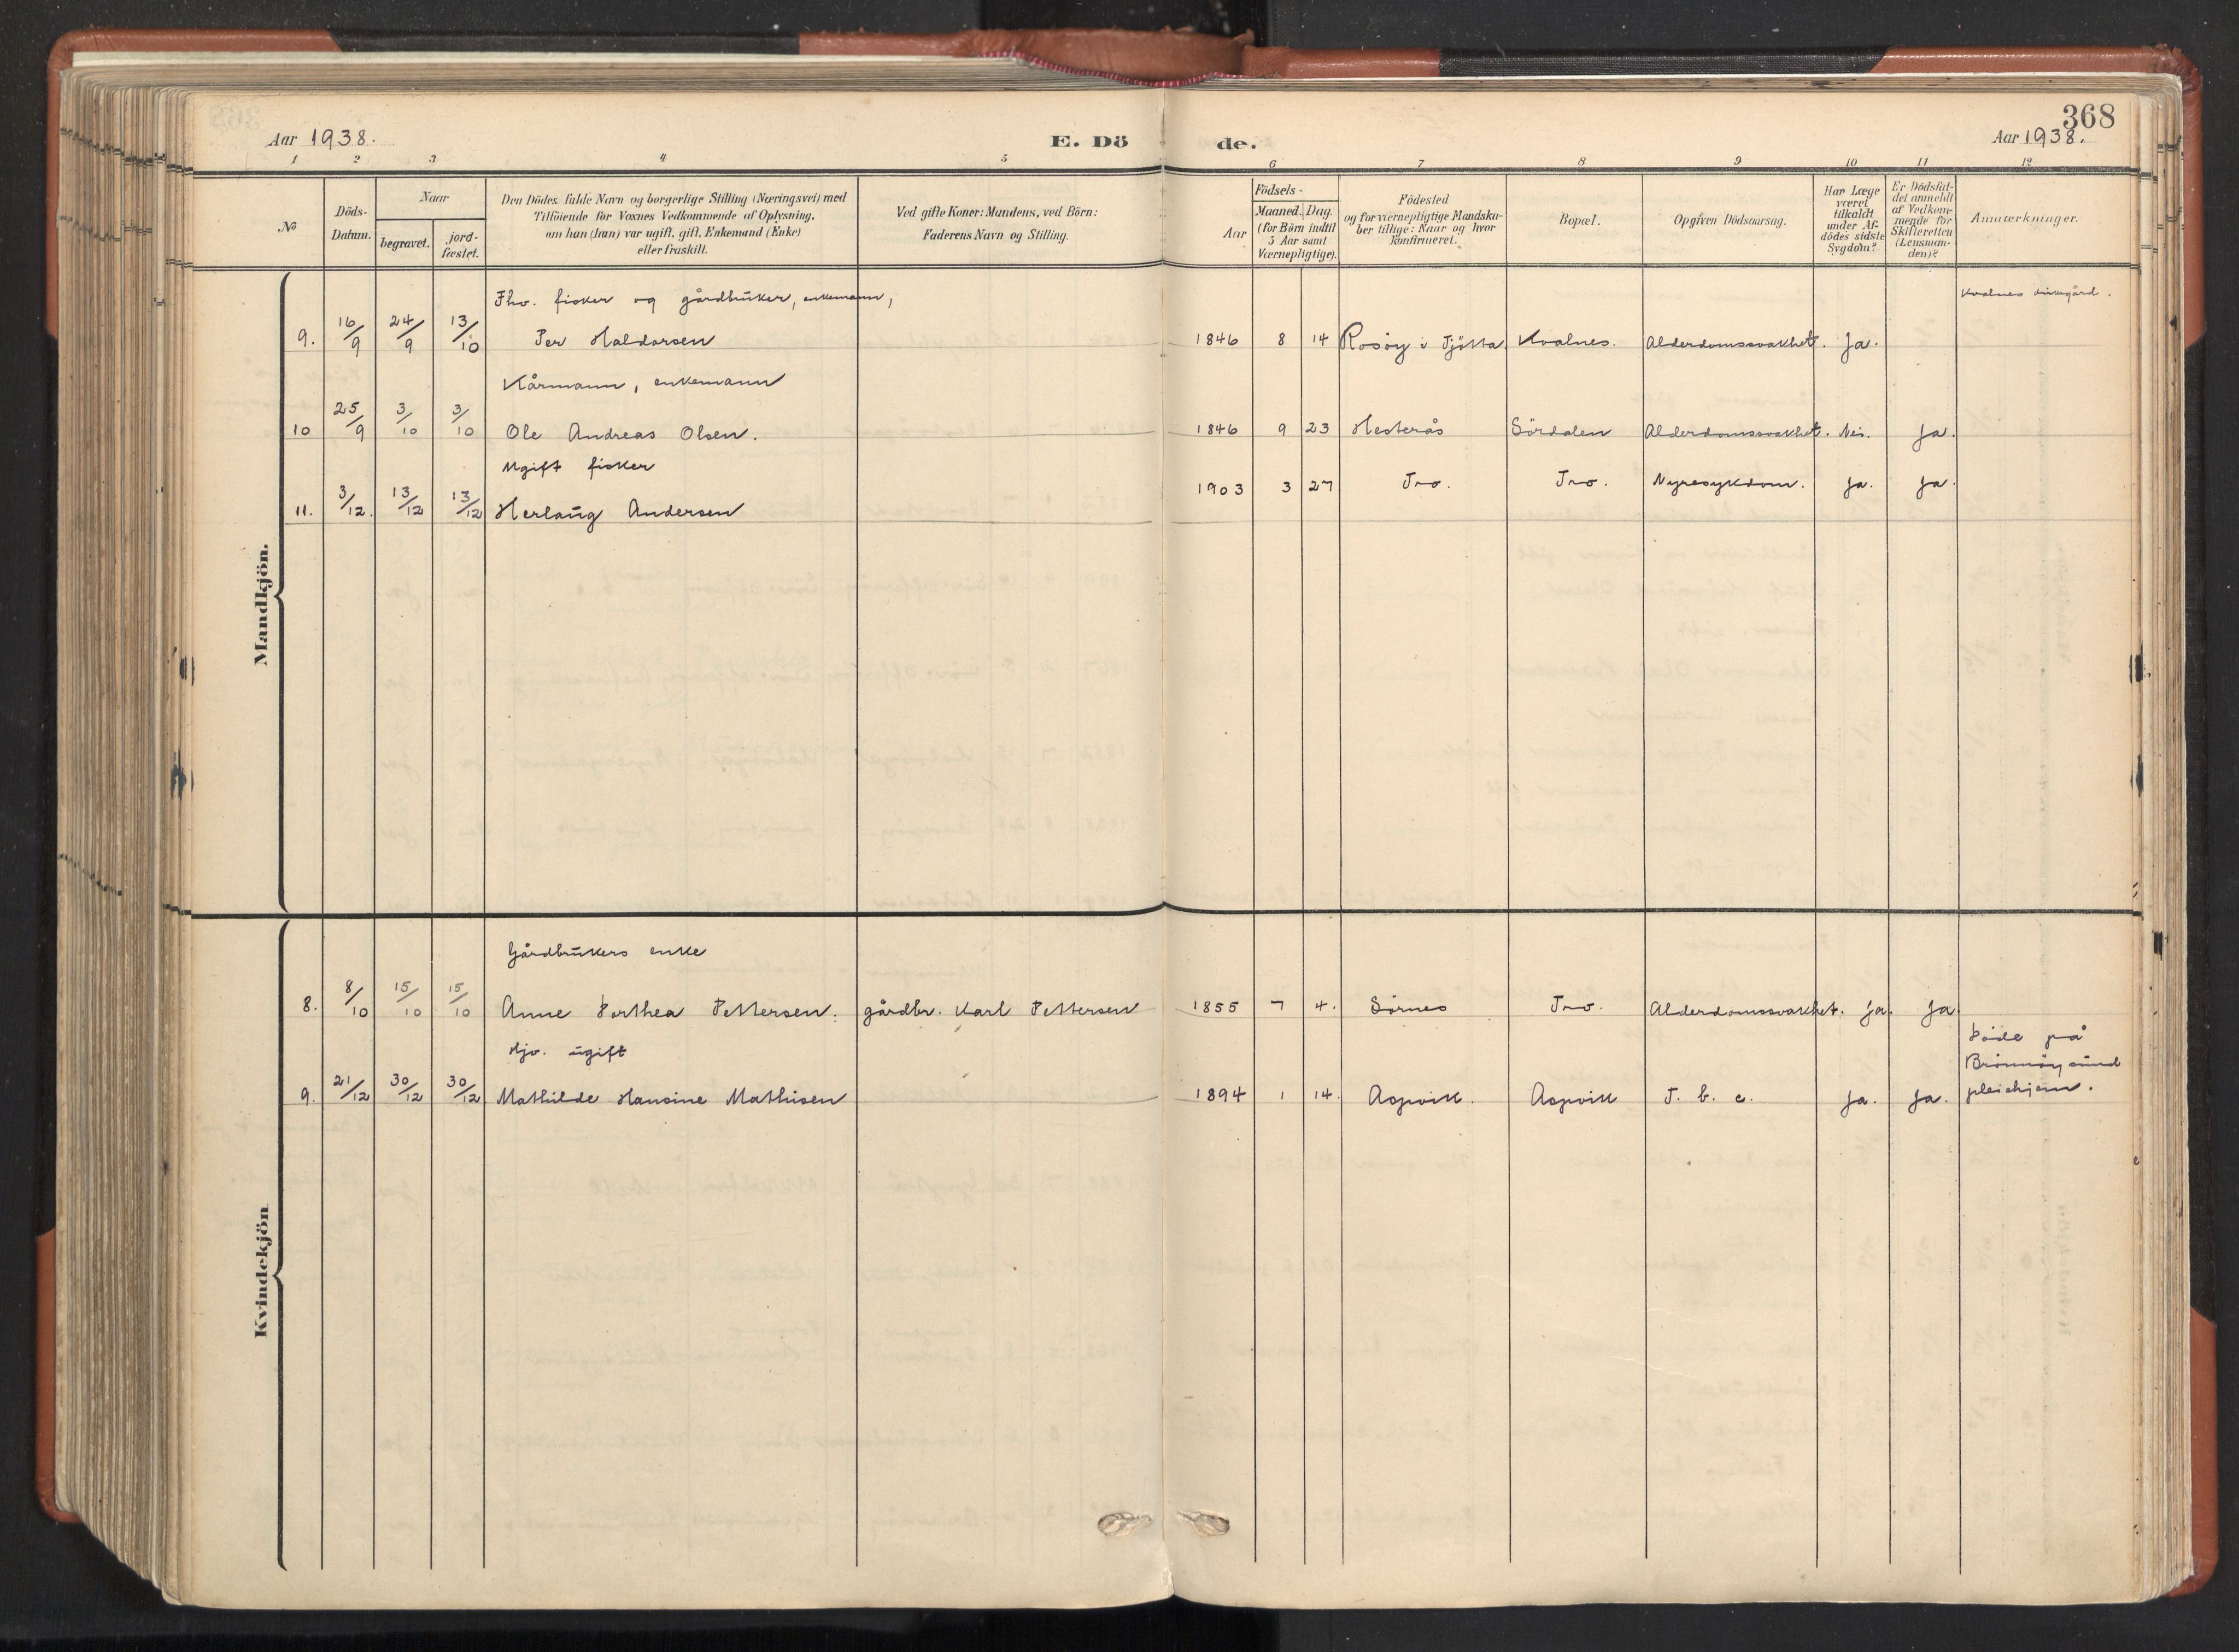 368
Aar 1938.
E. Döde.
Aar 1938.
1 2 3 4 5 6 7 8 9 10 11 12
No
Döds-Datum.
Naar
begravet.
jord-fæstet.
Den Dödes fulde Navn og borgerlige Stilling (Næringsvei) med
Tilföiende for Voxnes Vedkommende af Oplysning,
om han (hun) var ugift, gift, Enkemand (Enke)
eller fraskilt.
Ved gifte Koner: Mandens, ved Börn:
Faderens Navn og Stilling.
Födsels-
Aar
Maaned. Dag.
(for Börn indtil
5 Aar samt
Værnepligtige).
Födested
og for værnepligtige Mandska-
ber tillige: Naar og hvor
Konfirmeret.
Bopæl.
Opgiven Dödsaarsag.
Har Læge
været
tilkaldt
under Af-
dödes sidste
Sygdom?
Er Dödsfal-
det anmeldt
af Vedkom-
mende for
Skifteretten
(Lensman-
den)?
Anmærkninger.
Mandkjön.
Fhv. fisker og gårdbruker, enkemann,
Kvalnes kirkegård.
9. 16/9 24/9 13/10 Per Haldorsen 1846 8 14 Rosöy i Tjötta Kvalnes. Alderdomssvakhet. Ja.
Kårmann, enkemann
10 25/9 3/10 3/10 Ole Andreas Olsen. 1846 9 23 Hesterås Sördalen Alderdomssvakhet. Nei. Ja.
Ugift fisker
11. 3/12. 13/12 13/12 Herlaug Andersen 1903 3 27 Tro. Tro. Nyresykdom. Ja. Ja.
Kvindekjön
Gårdbrukers enke
8. 8/10 15/10 15/10 Anne Dorthea Pettersen. gårdbr. Karl Pettersen 1855 7 4. Sörnes Tro. Alderdomssvakhet. Ja. Ja
Hjv. ugift
Döde på
Brönnöysund
pleiehjem.
9. 21/12 30/12 30/12 Mathilde Hansine Mathisen 1894 1 14. Aspvik. Aspvik T. b. c. Ja. Ja.